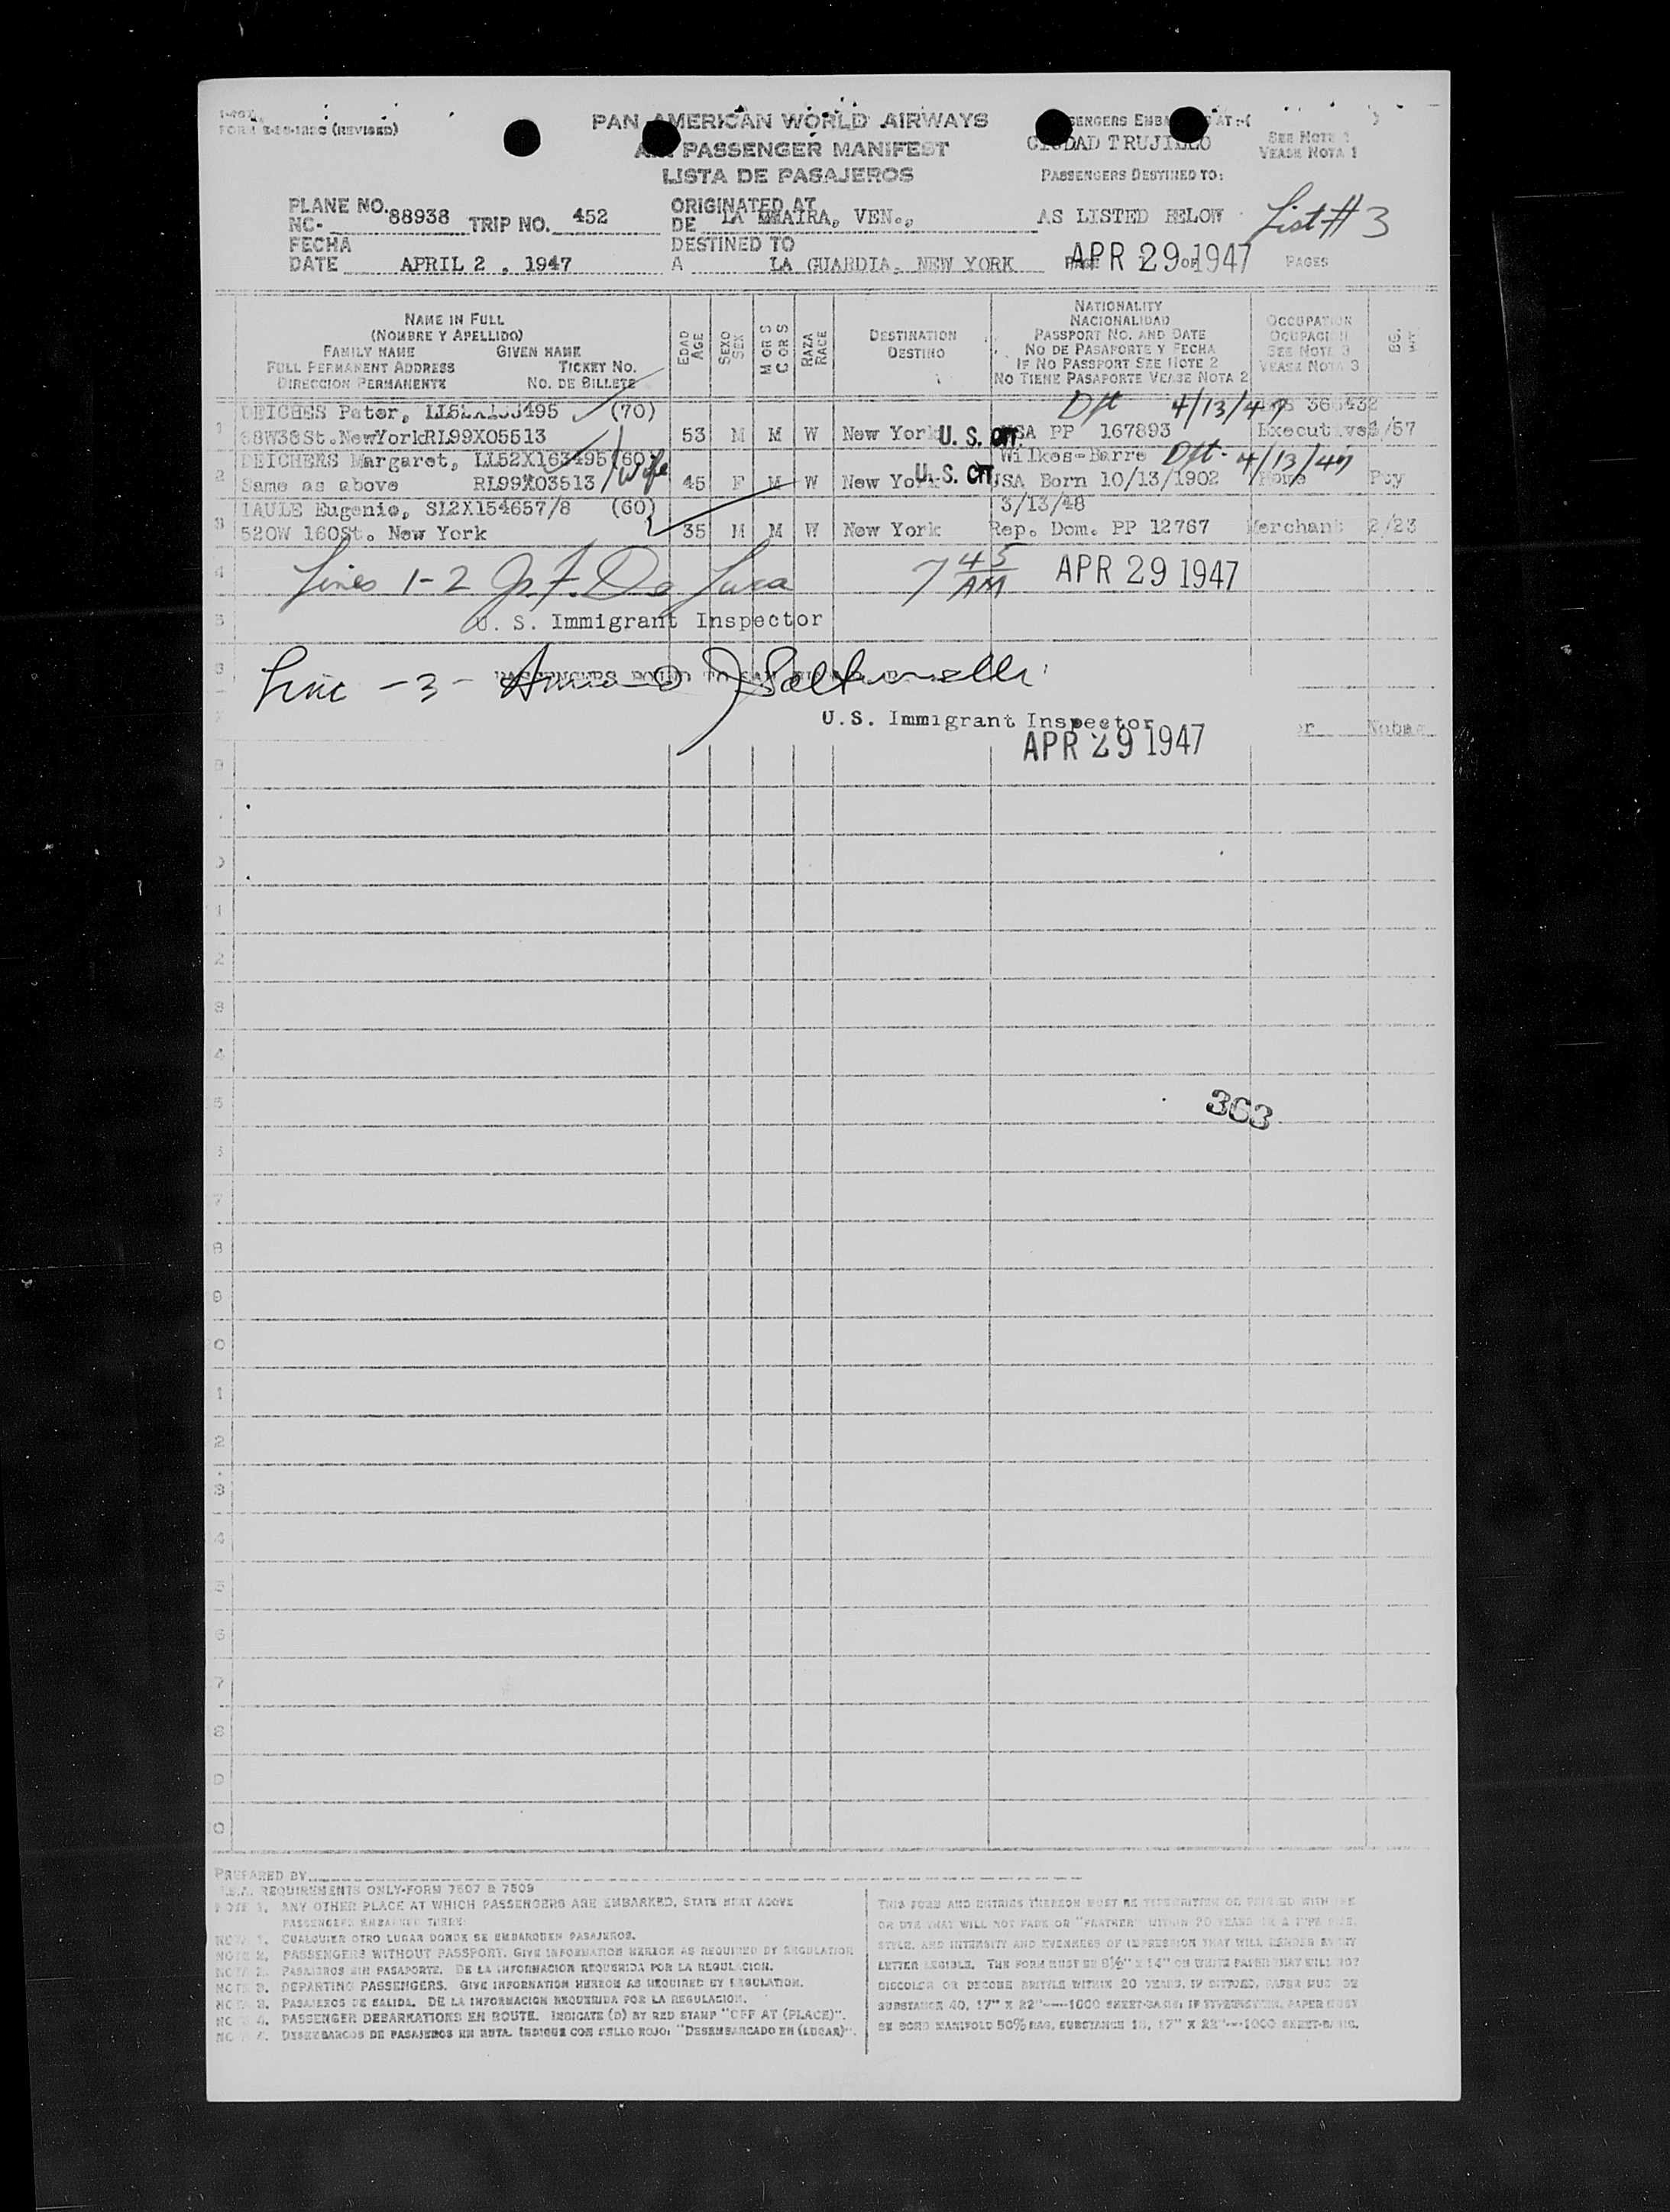 FORM (REVISED)
PAN AMERICAN WORLD AIRWAYS
PASSENGER MANIFEST
LISTA DE PASAJEROS
CIUDAD TRUJILLO
SEE NOTE 1
VEASE NOTA 1
PASSENGERS DESTINED TO:
PLANE NO. 88938 TRIP NO. 452
NC-
ORIGINATED AT
DE VEN.,
AS LISTED BELOW
List # 3
FECHA
DATE APRIL 2 , 1947
DESTINED TO
A LA GUARDIA, NEW YORK
APR 29 1947
PAGES
NAME IN FULL
(NOMBRE Y APELLIDO)
FAMILY NAME GIVEN NAME
FULL PERMANENT ADDRESS TICKET NO.
DIRECCION PERMANENTE NO. DE BILLETE
EDAD
AGE
SEXO
SEX
M OR S
C OR S
RAZA
RACE
DESTINATION
DESTINO
NATIONALITY
NACIONALIDAD
PASSPORT NO. AND DATE
NO DE PASAPORTE Y FECHA
IF NO PASSPORT SEE NOTE 2
NO TIENE PASAPORTE VEASE NOTA 2
OCCUPATION
OCUPACION
SEE NOTE 3
VEASE NOTA 3
1 DEICHES Peter, (70) Dft 4/13/47
68W38St.NewYorkRL99X05513 53 M M W New York U. S. CIT. USA PP 167893 Executive /57
2 DEICHERS Margaret, LL52X163495 (60) Wife Wilkes-Barre Dft- 4/13/47
Same as above RL99X03513 45 F M W New York U. S. CIT USA Born 10/13/1902 Home Pcy
3 Eugenio, SL2X154657/8 (60) 3/13/48
520W 160St. New York 35 M M W New York Rep. Dom. PP 12767 Merchant 2/23
4 Lines 1-2 7 45 AM APR 29 1947
U. S. Immigrant Inspector
Line - 3 -
U.S. Immigrant Inspector
APR 29 1947
363
PREPARED BY
REQUIREMENTS ONLY-FORM 7507 & 7509
NOTE 1. ANY OTHER PLACE AT WHICH PASSENGERS ARE EMBARKED, STATE NEXT ABOVE
PASSENGERS EMBARKED THERE.
NOTA 1. CUALQUIER OTRO LUGAR DONDE SE EMBARQUEN PASAJEROS.
NOTE 2. PASSENGERS WITHOUT PASSPORT. GIVE INFORMATION HEREON AS REQUIRED BY REGULATION
NOTA 2. PASAJEROS SIN PASAPORTE. DE LA INFORMACION REQUERIDA POR LA REGULACION.
NOTE 3. DEPARTING PASSENGERS. GIVE INFORMATION HEREON AS REQUIRED BY REGULATION.
NOTA 3. PASAJEROS DE SALIDA. DE LA INFORMACION REQUERIDA POR LA REGULACION.
NOTE 4. PASSENGER DEBARKATIONS EN ROUTE. INDICATE (D) BY RED STAMP "OFF AT (PLACE)".
NOTA 4. DESEMBARCOS DE PASAJEROS EN RUTA. INDIQUE CON SELLO ROJO: "DESEMBARCADO EN (LUGAR)".
THIS FORM AND ENTRIES THEREON MUST BE TYPEWRITTEN OR PRINTED WITH INK
OR DYE THAT WILL NOT FADE OR "FEATHER" WITHIN 20 YEARS IN A TYPE SIZE,
STYLE, AND INTENSITY AND EVENNESS OF IMPRESSION THAT WILL RENDER EVERY
LETTER LEGIBLE. THE FORM MUST BE 8½" X 14" ON WHITE PAPER THAT WILL NOT
DISCOLOR OR BECOME BRITTLE WITHIN 20 YEARS. IF DITTOED, PAPER MUST BE
SUBSTANCE 40, 17" X 22"---1000 SHEET-BASIS; IF TYPEWRITTEN, PAPER MUST
BE BOND MANIFOLD 50% RAG, SUBSTANCE 18, 17" X 22"---1000 SHEET-BASIS.